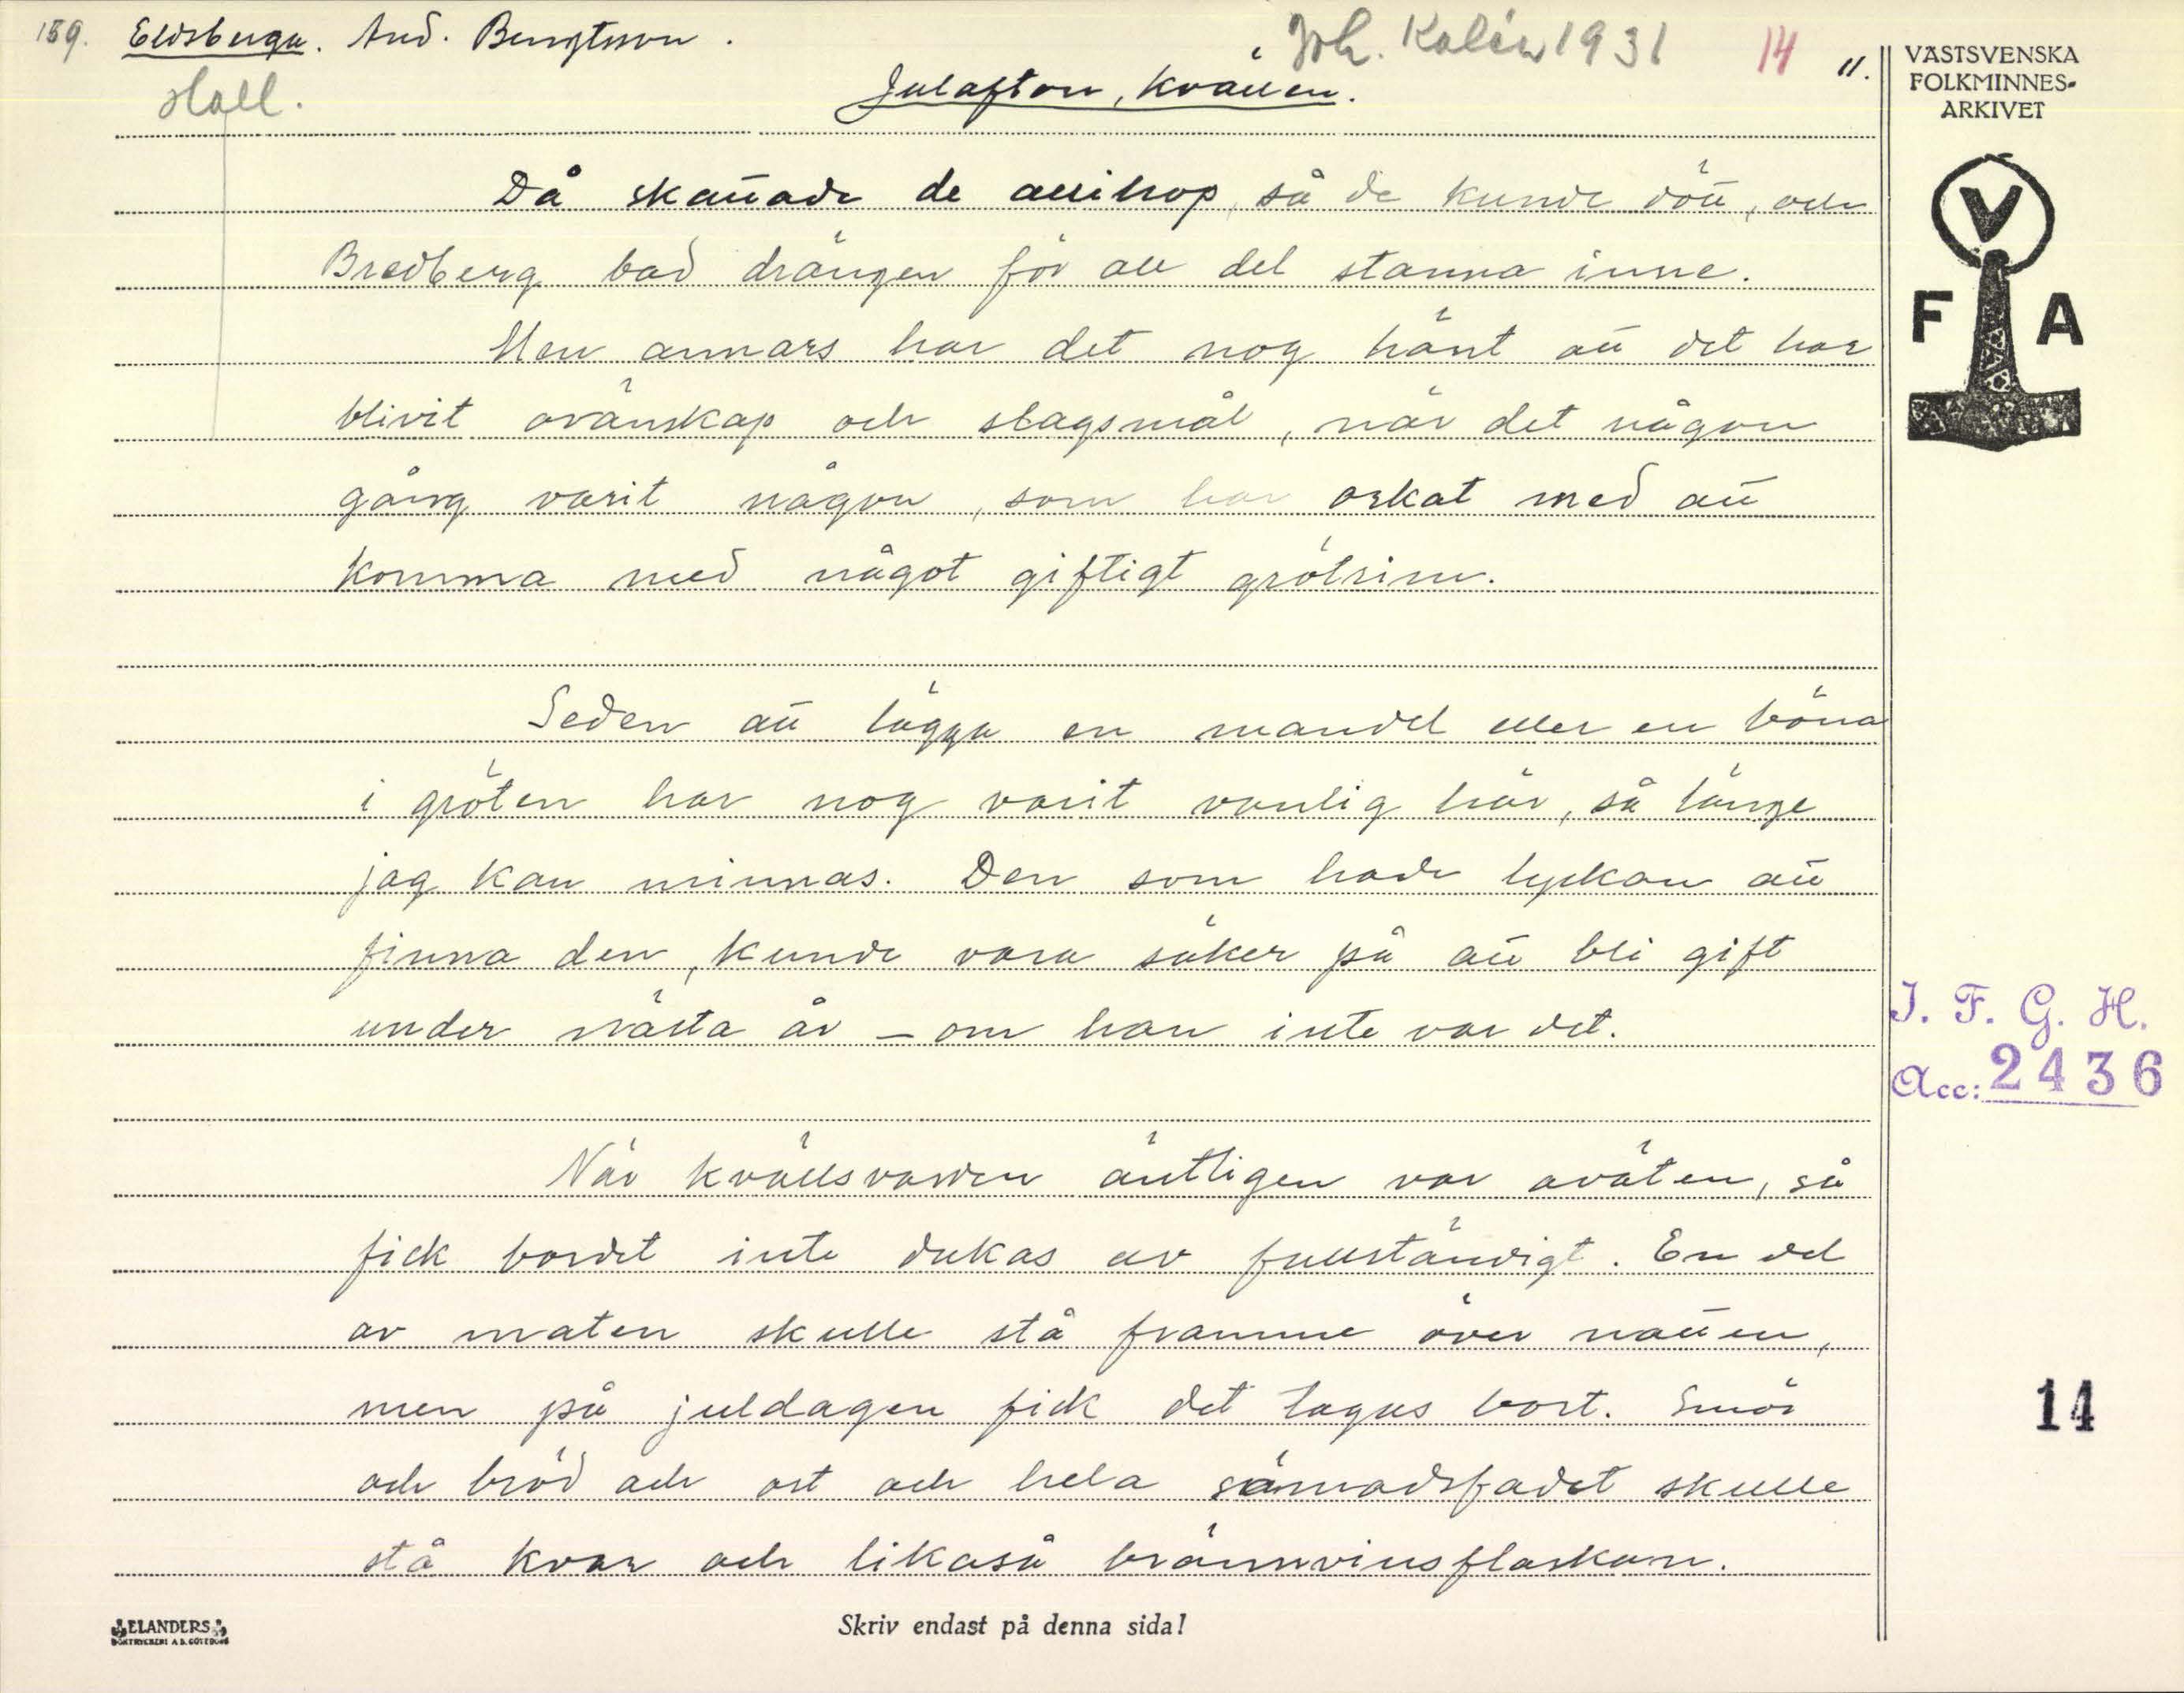 159. Eldsberga. And. Bengtsson.
Joh. Kalén 1931 14 11.
Hall.
Julafton, kvällen.
VÄSTSVENSKA
FOLKMINNES-
ARKIVET
V
F A
Då skattade de allihop, så de kunde dött, och
Bredberg bad drängen för all del stanna inne.
Men annars har det nog hänt att det har
blivit ovänskap och slagsmål, när det någon
gång varit någon, som har orkat med att
komma med något giftigt grötrim.
Seden att lägga en mandel eller en böna
i gröten har nog varit vanlig här, så länge
jag kan minnas. Den som hade lyckan att
finna den, kunde vara säker på att bli gift
under nästa år – om han inte var det.
När kvällsvarden äntligen var aväten, så
fick bordet inte dukas av fullständigt. En del
av maten skulle stå framme över natten,
men på juldagen fick det tagas bort. Smör
och bröd och ost och hela sämnadsfadet skulle
stå kvar och likaså brännvinsflaskan.
I. F. G. H.
Acc: 2436
14
ELANDERS
BOKTRYCKERI A.B. GÖTEBORG
Skriv endast på denna sida!